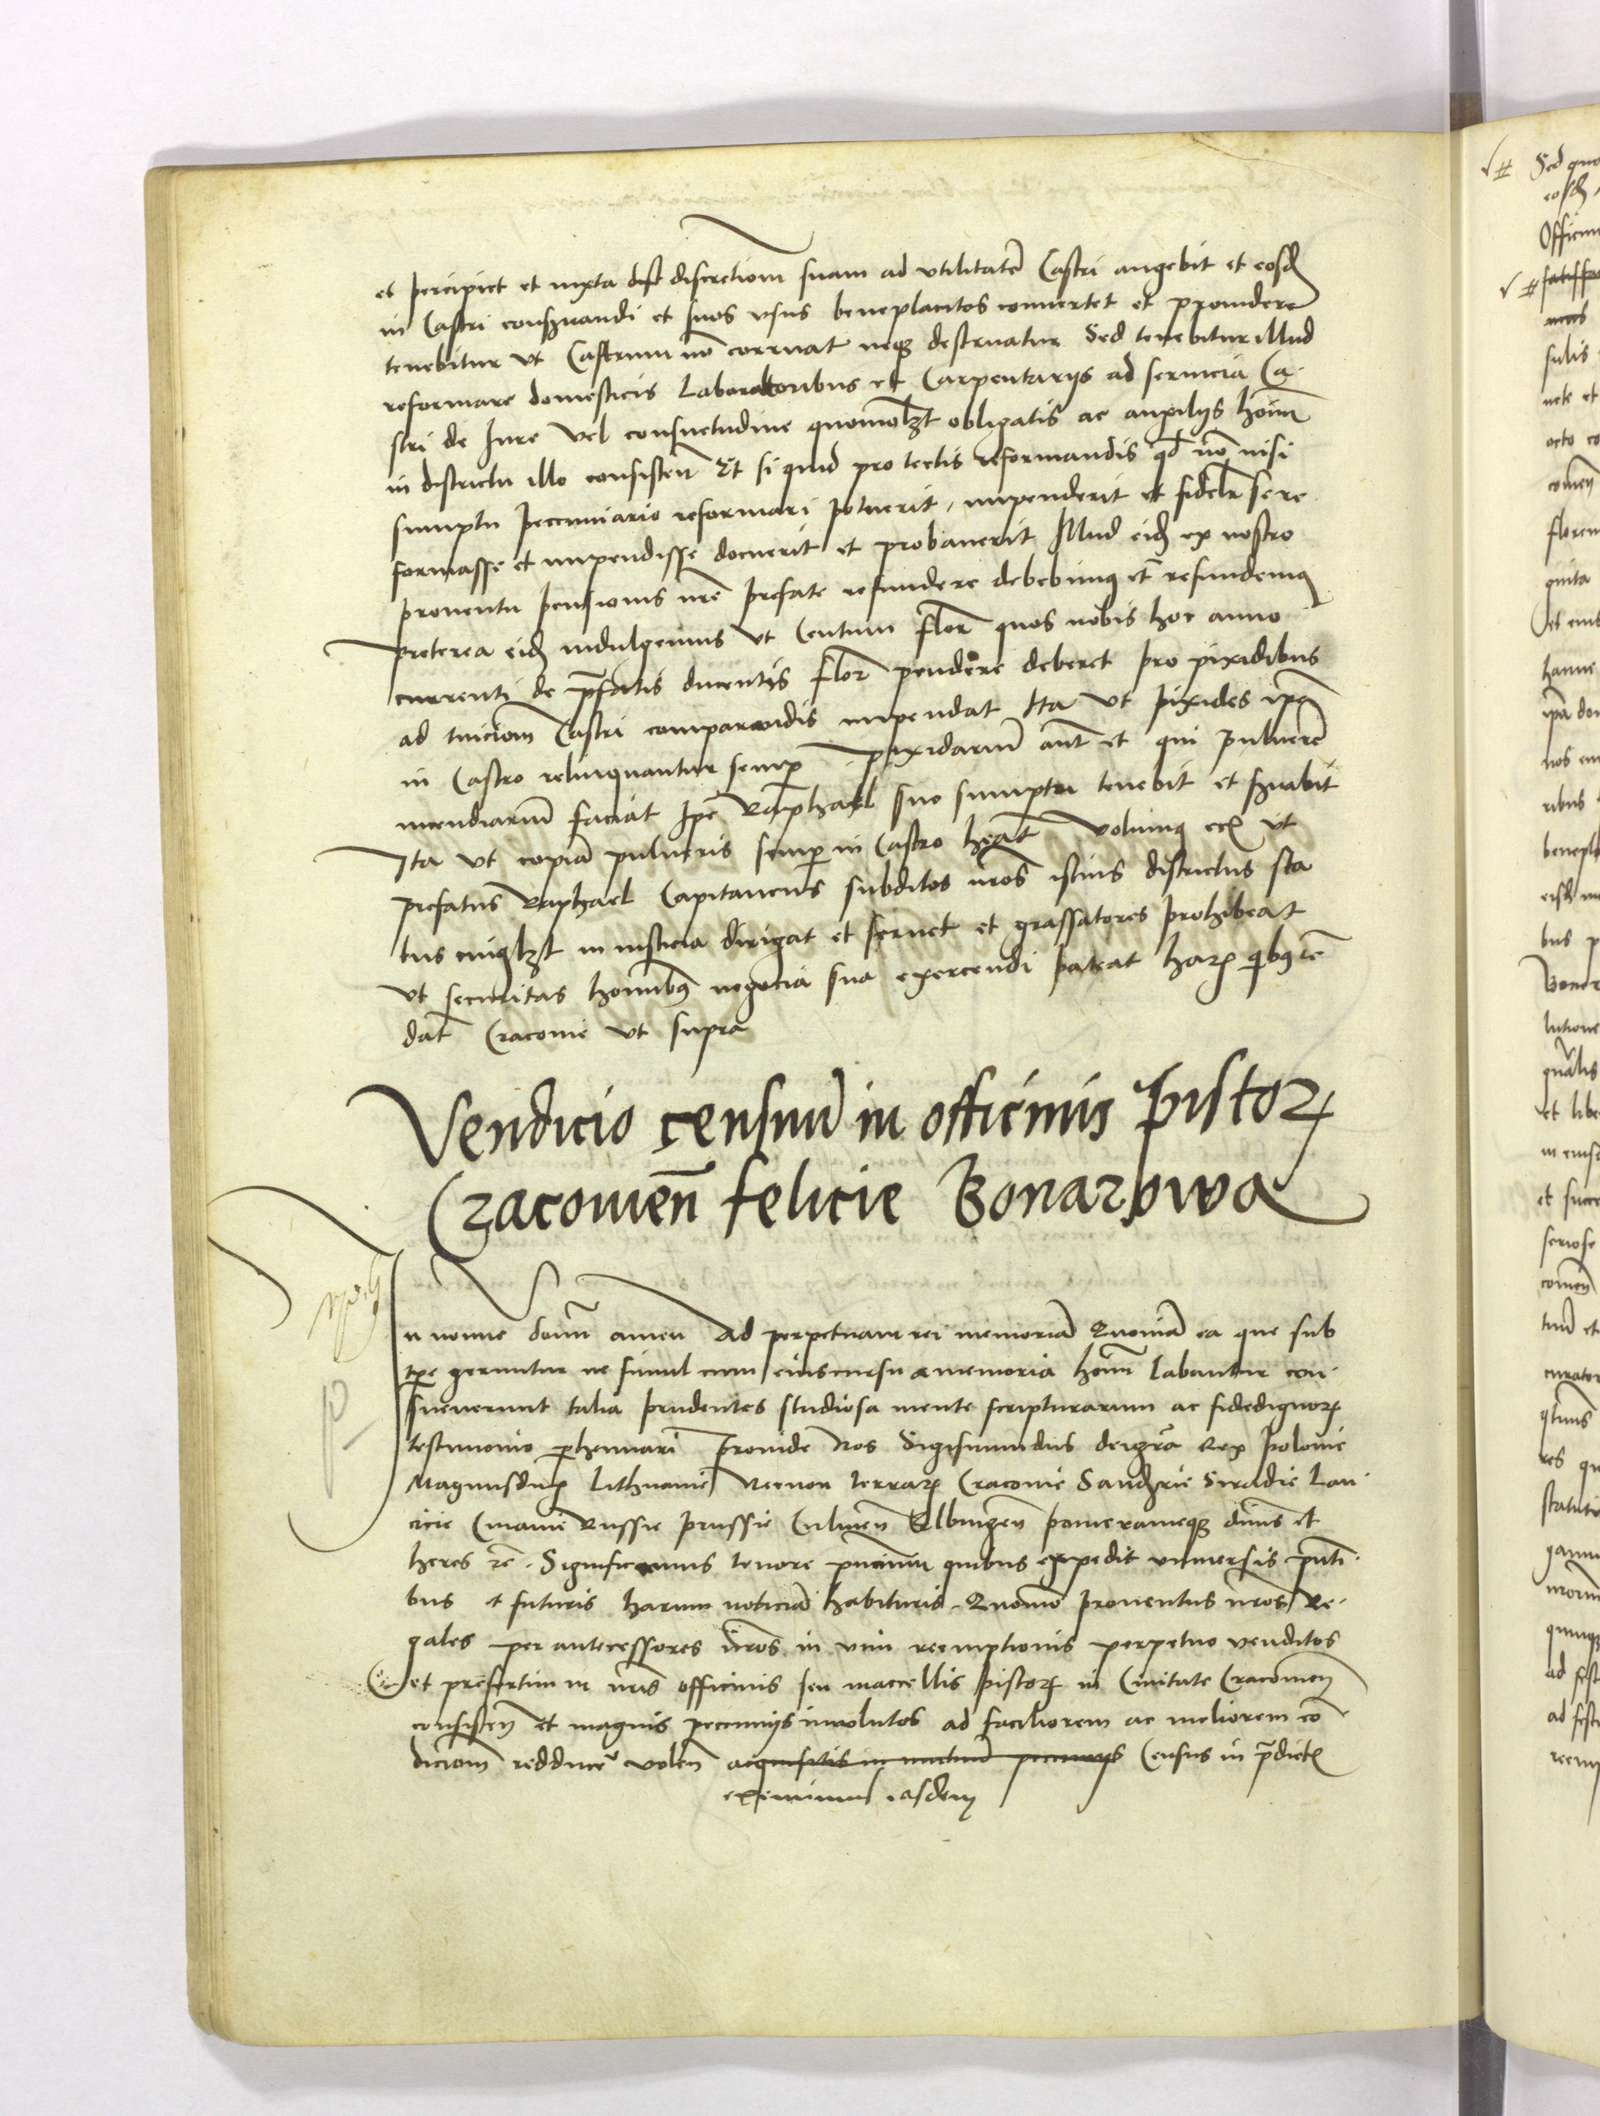 et percipiet et iuxta dist discretiom suam ad utilitatē Castri augebit et eosd
in Castri conservandi et suos usus beneplacitos convertet et providere
tenebitur ut Castrum nō corruat neqz destruatur Sed tenebitur illud
reformare domesticis Laboratoribus et Carpentarijs ad servicia Ca-
stri de Jure vel consuetudine quomolzt obligatis ac auxilijs hoīm
in districtu illo consisteñ Et si quid pro tectis reformandis qd nō nisi
sumptu pecuniario reformari potuerit, impenderit et fidelr se re
formasse et impendisse docuerit et probaverit Illud eid ex nostro
proventu pensionis nrē prefate refundere debebimus et refundemus
Preterea eid indulgemus ut Centum flor quos nobis hoc anno
currenti de prefatis ducentis flor pendere deberet pro pixidibus
ad tuiciom Castri comparandis impendat Ita ut pixides ipē
in Castro relinquantur semper Pixidariū aūt et qui pulverē
incendiariū faciat Ipē Raphael suo sumptu tenebit et servabit
Ita ut copiā pulveris semper in Castro heāt Volumus ecī ut
prefatus Raphael Capitaneus subditos nros istius districtus sta
tus cuiuslzt in iusticia dirigat et servet et grassatores prohibeat
ut securitas hominibus negocia sua exercendi pateat harum quibus rē
dat Cracovie ut supra
Vendicio censuū in officinis pistorum
Cracovieñ felicie Bonarowa
In nomine domī amen Ad perpetuam rei memoriā Quoniā ea que sub
tpe geruntur ne simul cum eius cursu a memoria hoīm labantur con-
sueverunt talia prudentes studiosa mente scripturarum ac fidedignorum
testimonio perhennari Proinde Nos Sigismundus dei grā Rex polonie
Magnusdux Lithuanie Necnon terrarum Cracovie Sandzrie Siradie Lan-
cicie Cuiavie Russie prussie Culmeñ Elbingeñ pomeranieqz dīns et
heres rē. Significamus tenore pncium quibus expedit universis pnti-
bus et futuris harum noticiā habituris. Quomō proventus nros Re-
gales per antecessores nros in vim reemptionis perpetuo venditos
et presertim in nris officinis seu maccellis pistorum in Civitate Cracovieñ
consisteñ et magnis pecunijs involutos ad faciliorem ac meliorem cō
diciom redducere voleñ acquisitis in mutuū pecunijs Census in predict
exemimus easdem